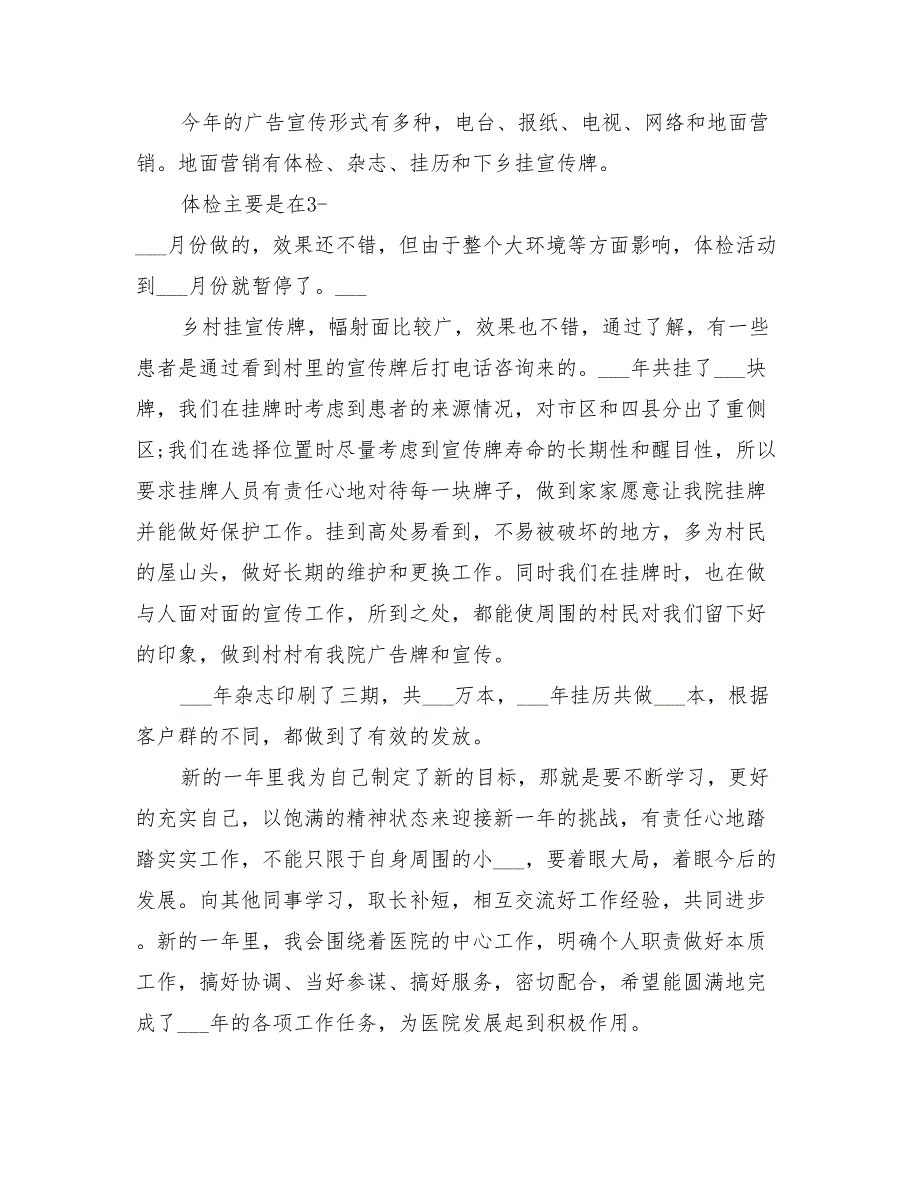 今年的广告宣传形式有多种，电台、报纸、电视、网络和地面营
销。地面营销有体检、杂志、挂历和下乡挂宣传牌。
体检主要是在3-
___月份做的，效果还不错，但由于整个大环境等方面影响，体检活动
到___月份就暂停了。___
乡村挂宣传牌，幅射面比较广，效果也不错，通过了解，有一些
患者是通过看到村里的宣传牌后打电话咨询来的。___年共挂了___块
牌，我们在挂牌时考虑到患者的来源情况，对市区和四县分出了重侧
区;我们在选择位置时尽量考虑到宣传牌寿命的长期性和醒目性，所以
要求挂牌人员有责任心地对待每一块牌子，做到家家愿意让我院挂牌
并能做好保护工作。挂到高处易看到，不易被破坏的地方，多为村民
的屋山头，做好长期的维护和更换工作。同时我们在挂牌时，也在做
与人面对面的宣传工作，所到之处，都能使周围的村民对我们留下好
的印象，做到村村有我院广告牌和宣传。
___年杂志印刷了三期，共___万本，___年挂历共做___本，根据
客户群的不同，都做到了有效的发放。
新的一年里我为自己制定了新的目标，那就是要不断学习，更好
的充实自己，以饱满的精神状态来迎接新一年的挑战，有责任心地踏
踏实实工作，不能只限于自身周围的小___，要着眼大局，着眼今后的
发展。向其他同事学习，取长补短，相互交流好工作经验，共同进步
。新的一年里，我会围绕着医院的中心工作，明确个人职责做好本质
工作，搞好协调、当好参谋、搞好服务，密切配合，希望能圆满地完
成了___年的各项工作任务，为医院发展起到积极作用。